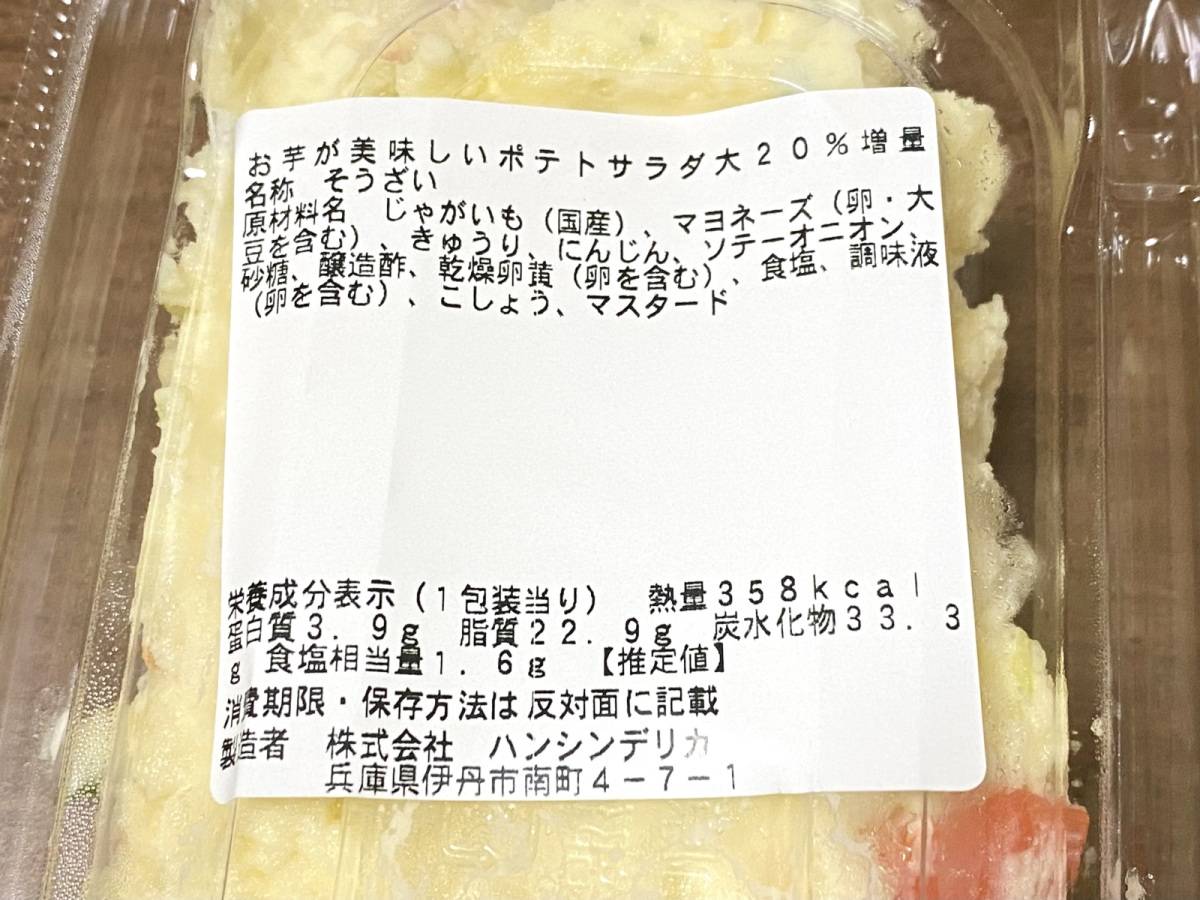 お芋が美味しいポテトサラダ大20%増量
名称 そうざい
原材料名 じゃがいも(国産)、マヨネーズ(卵・大
豆を含む)、きゅうり、にんじん、ソテーオニオン、
砂糖、醸造酢、乾燥卵黄(卵を含む)、食塩、調味液
(卵を含む)、こしょう、マスタード
栄養成分表示(1包装当り) 熱量358kcal
蛋白質3.9g 脂質22.9g 炭水化物33.3
g 食塩相当量1.6g 【推定値】
消費期限・保存方法は反対面に記載
製造者 株式会社 ハンシンデリカ
兵庫県伊丹市南町4-7-1